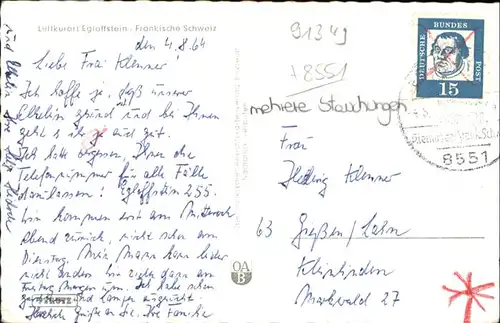 Luftkurort Egloffstein - Fränkische Schweiz
den 4.8.64
Liebe Frau Klemmer!
Ich hoffe ja, daß unser
gesund und bei Ihnen
geht's auch gut.
Ich hatte vergessen, Ihnen die
Telefonnummer für alle Fälle
dazulassen! Egloffstein 255.
Wir kommen erst am Mittwoch
Abend zurück, nicht schon am
Dienstag. Mein Mann kann leider
nicht anders. Wir ziehen dann am
Freitag Morgen um. Ich habe schon
und lange
Herzliche Grüße an Sie, Ihre Familie
und
91349
+8551
mehrere Stauchungen
DEUTSCHE
BUNDES
POST
15
8551
Frau
Hedwig Klemmer
63 Gießen/Lahn
Kleinlinden
Markwald 27